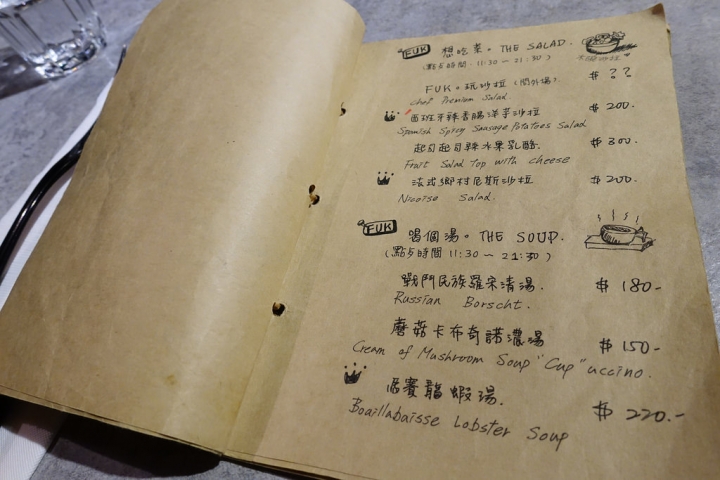 FUK 想吃菜。THE SALAD.
(點点時間 11:30～21:30)
FUK。玩沙拉 $ ??
Chef Premium Salad
西班牙辣香腸洋芋沙拉 $ 200.
Spanish Spicy Sausage Potatoes Salad
起司起司辣水果乳酪. $ 300
Fruit Salad Top with cheese
法式鄉村尼斯沙拉 $ 200.
Nicoise Salad.
FUK 喝個湯。THE SOUP.
(點点時間 11:30～21:30)
戰鬥民族羅宋清湯. $ 180-
Russian Borscht.
蘑菇卡布奇諾濃湯 $ 150-
Cream of Mushroom Soup "Cup" uccino.
馬賽龍蝦湯. $ 220.-
Boaillabaisse Lobster Soup